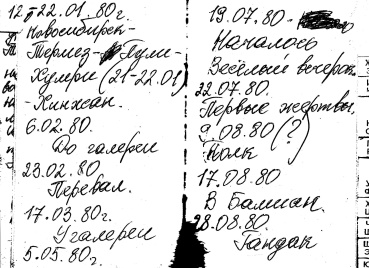 12-22.01.80г.
Новосибирск-
Термез-Пули-
Хумри (21-22.01)
-Хинжан.
6.02.80.
До галереи
23.02.80
Перевал.
17.03.80г.
У галереи
5.05.80г.
19.07.80-
Началось
Весёлый вечерок.
22.07.80.
Первые жертвы.
9.08.80(?)
Полк
17.08.80
В Бамиан.
28.08.80.
Гандак